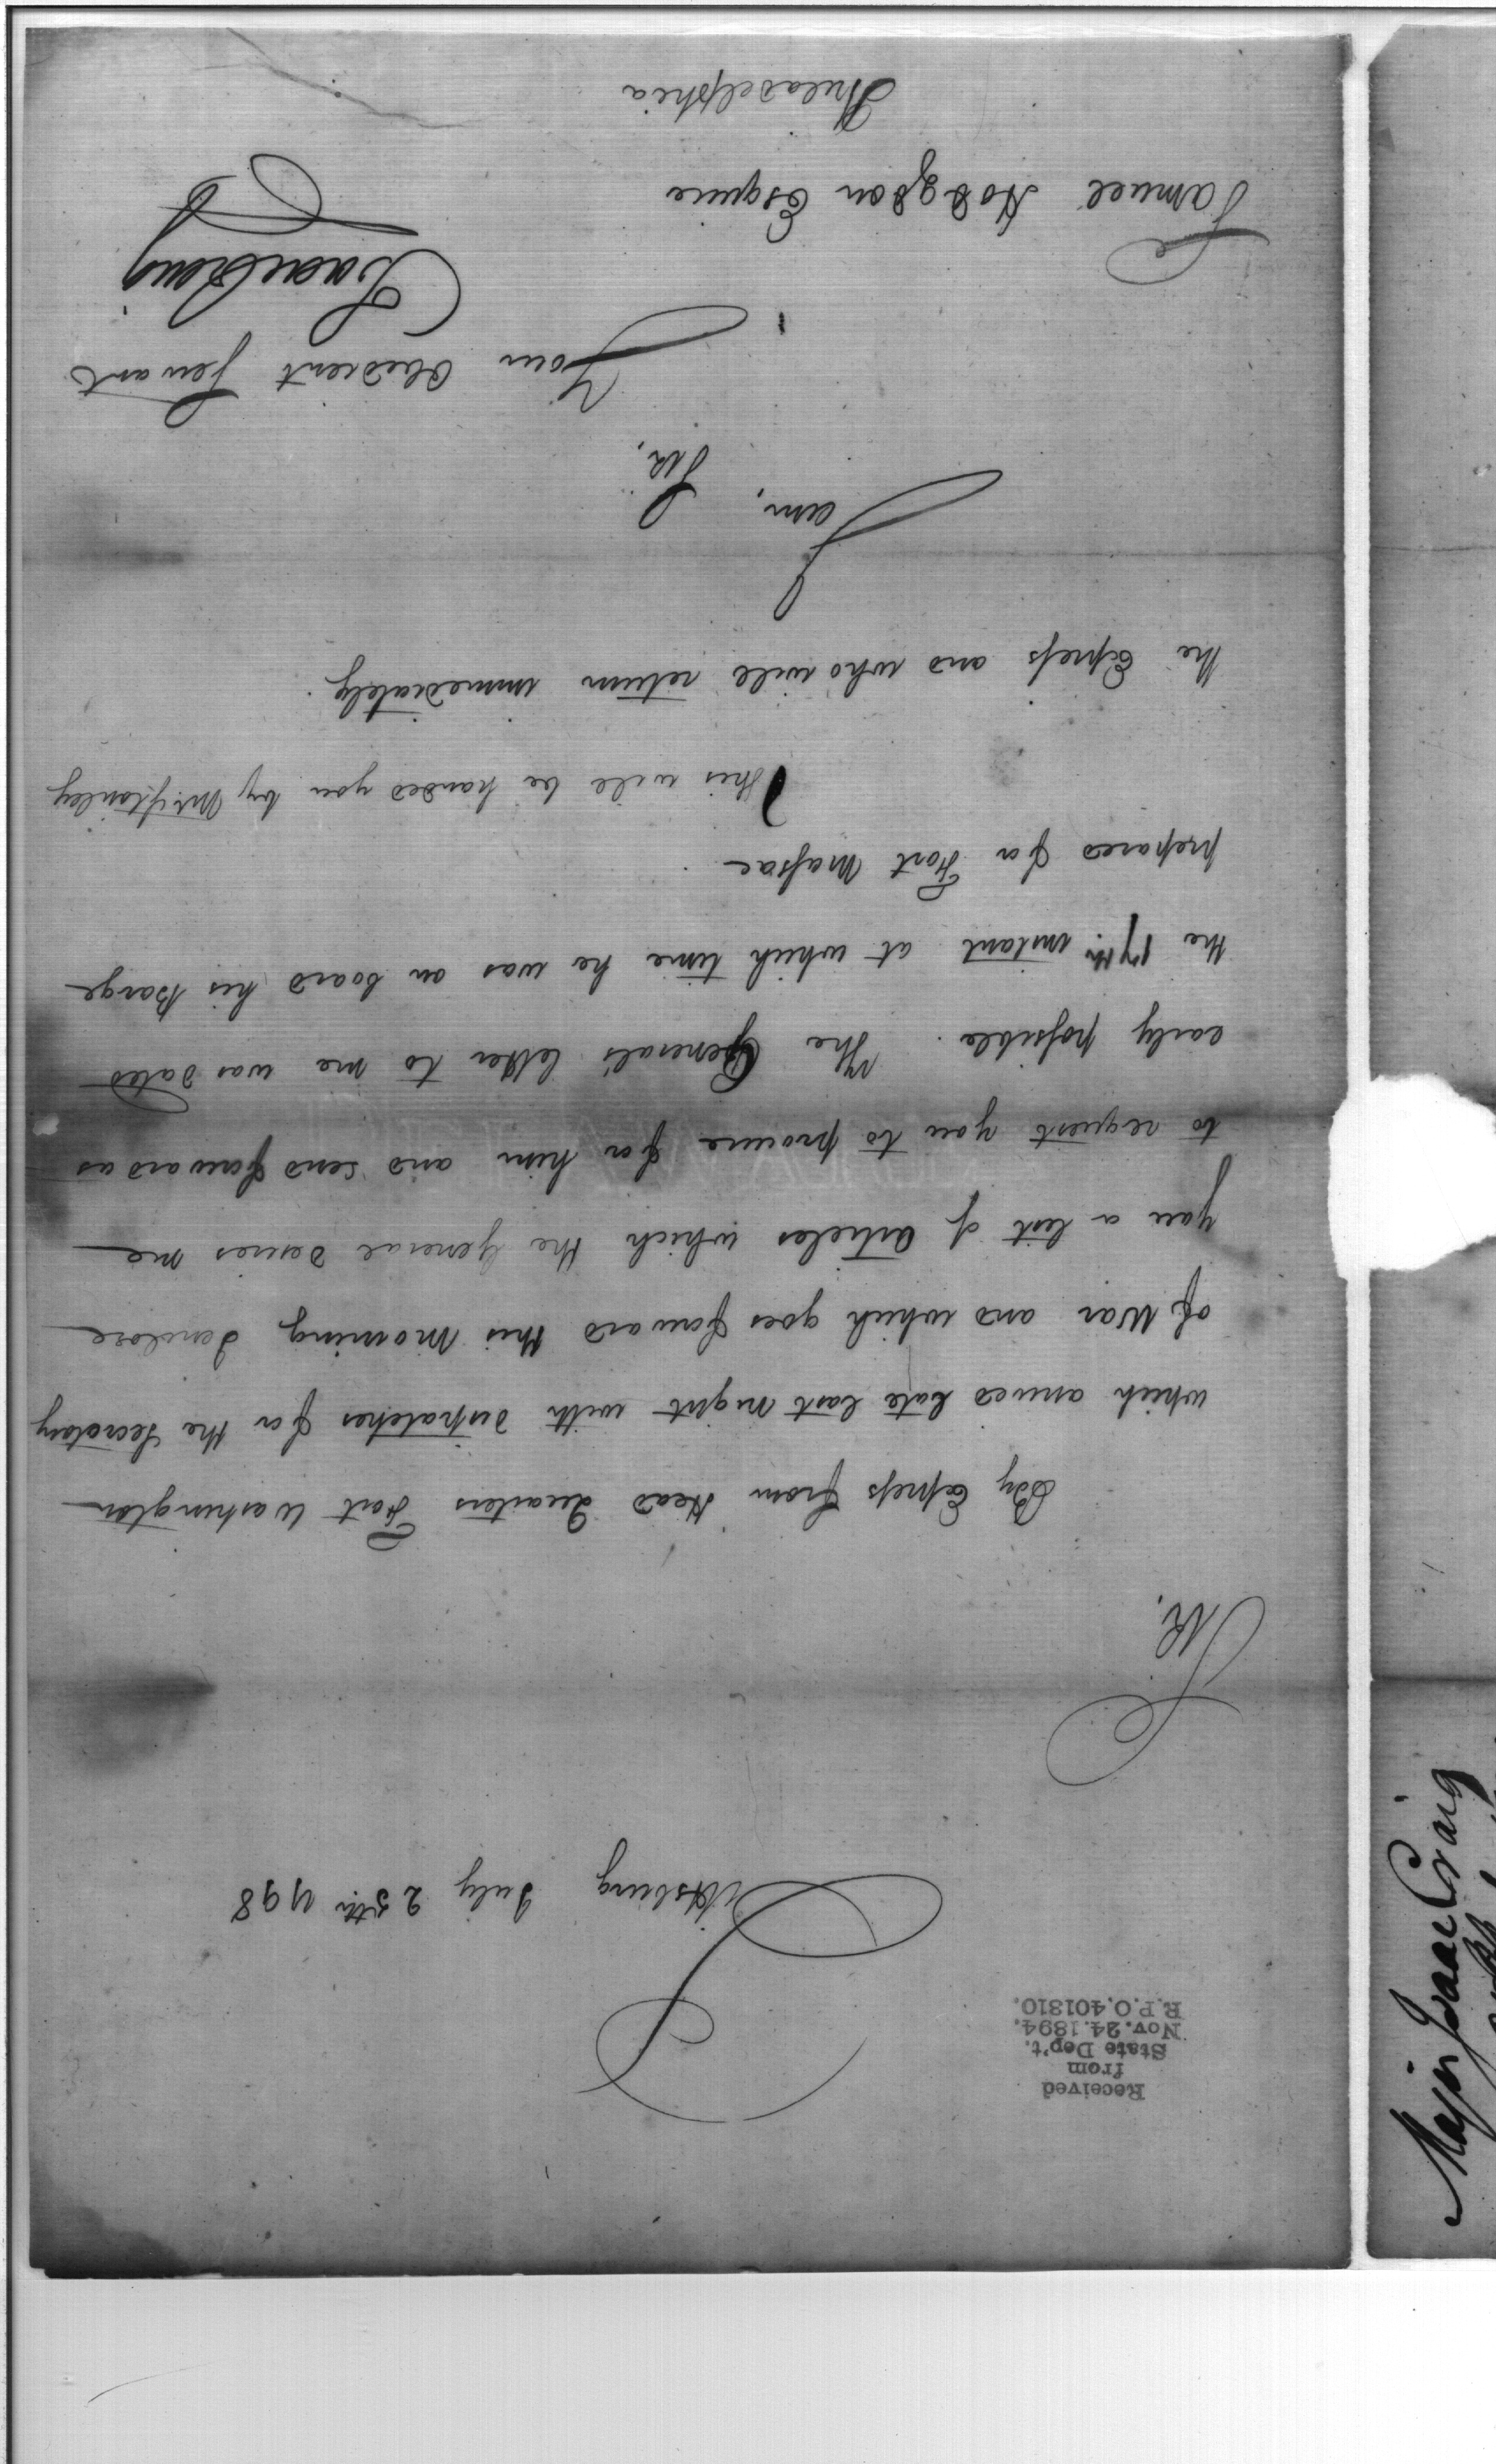 Received
from
State Dep't.
Nov. 24. 1894.
R.P.O. 401310.
Pittsburg July 25th 1798
Sir,
By Express from Head Quarters Fort Washington
which arrived late last night with dispatches for the Secretary
of War and which goes forward this Morning I enclose
you a list of Articles which the General desires me
to request you to procure for him and send forward as
early possible. The General's letter to me was dated
the 17th instant at which time he was on board his Barge
prepared for Fort Massac
This will be handed you by Mr. Stanley
the Express and who will return immediately.
I am, Sir,
Your Obedient Servant
Isaac Craig
Samuel Hodgdon Esquire
Philadelphia
Major Isaac Craig